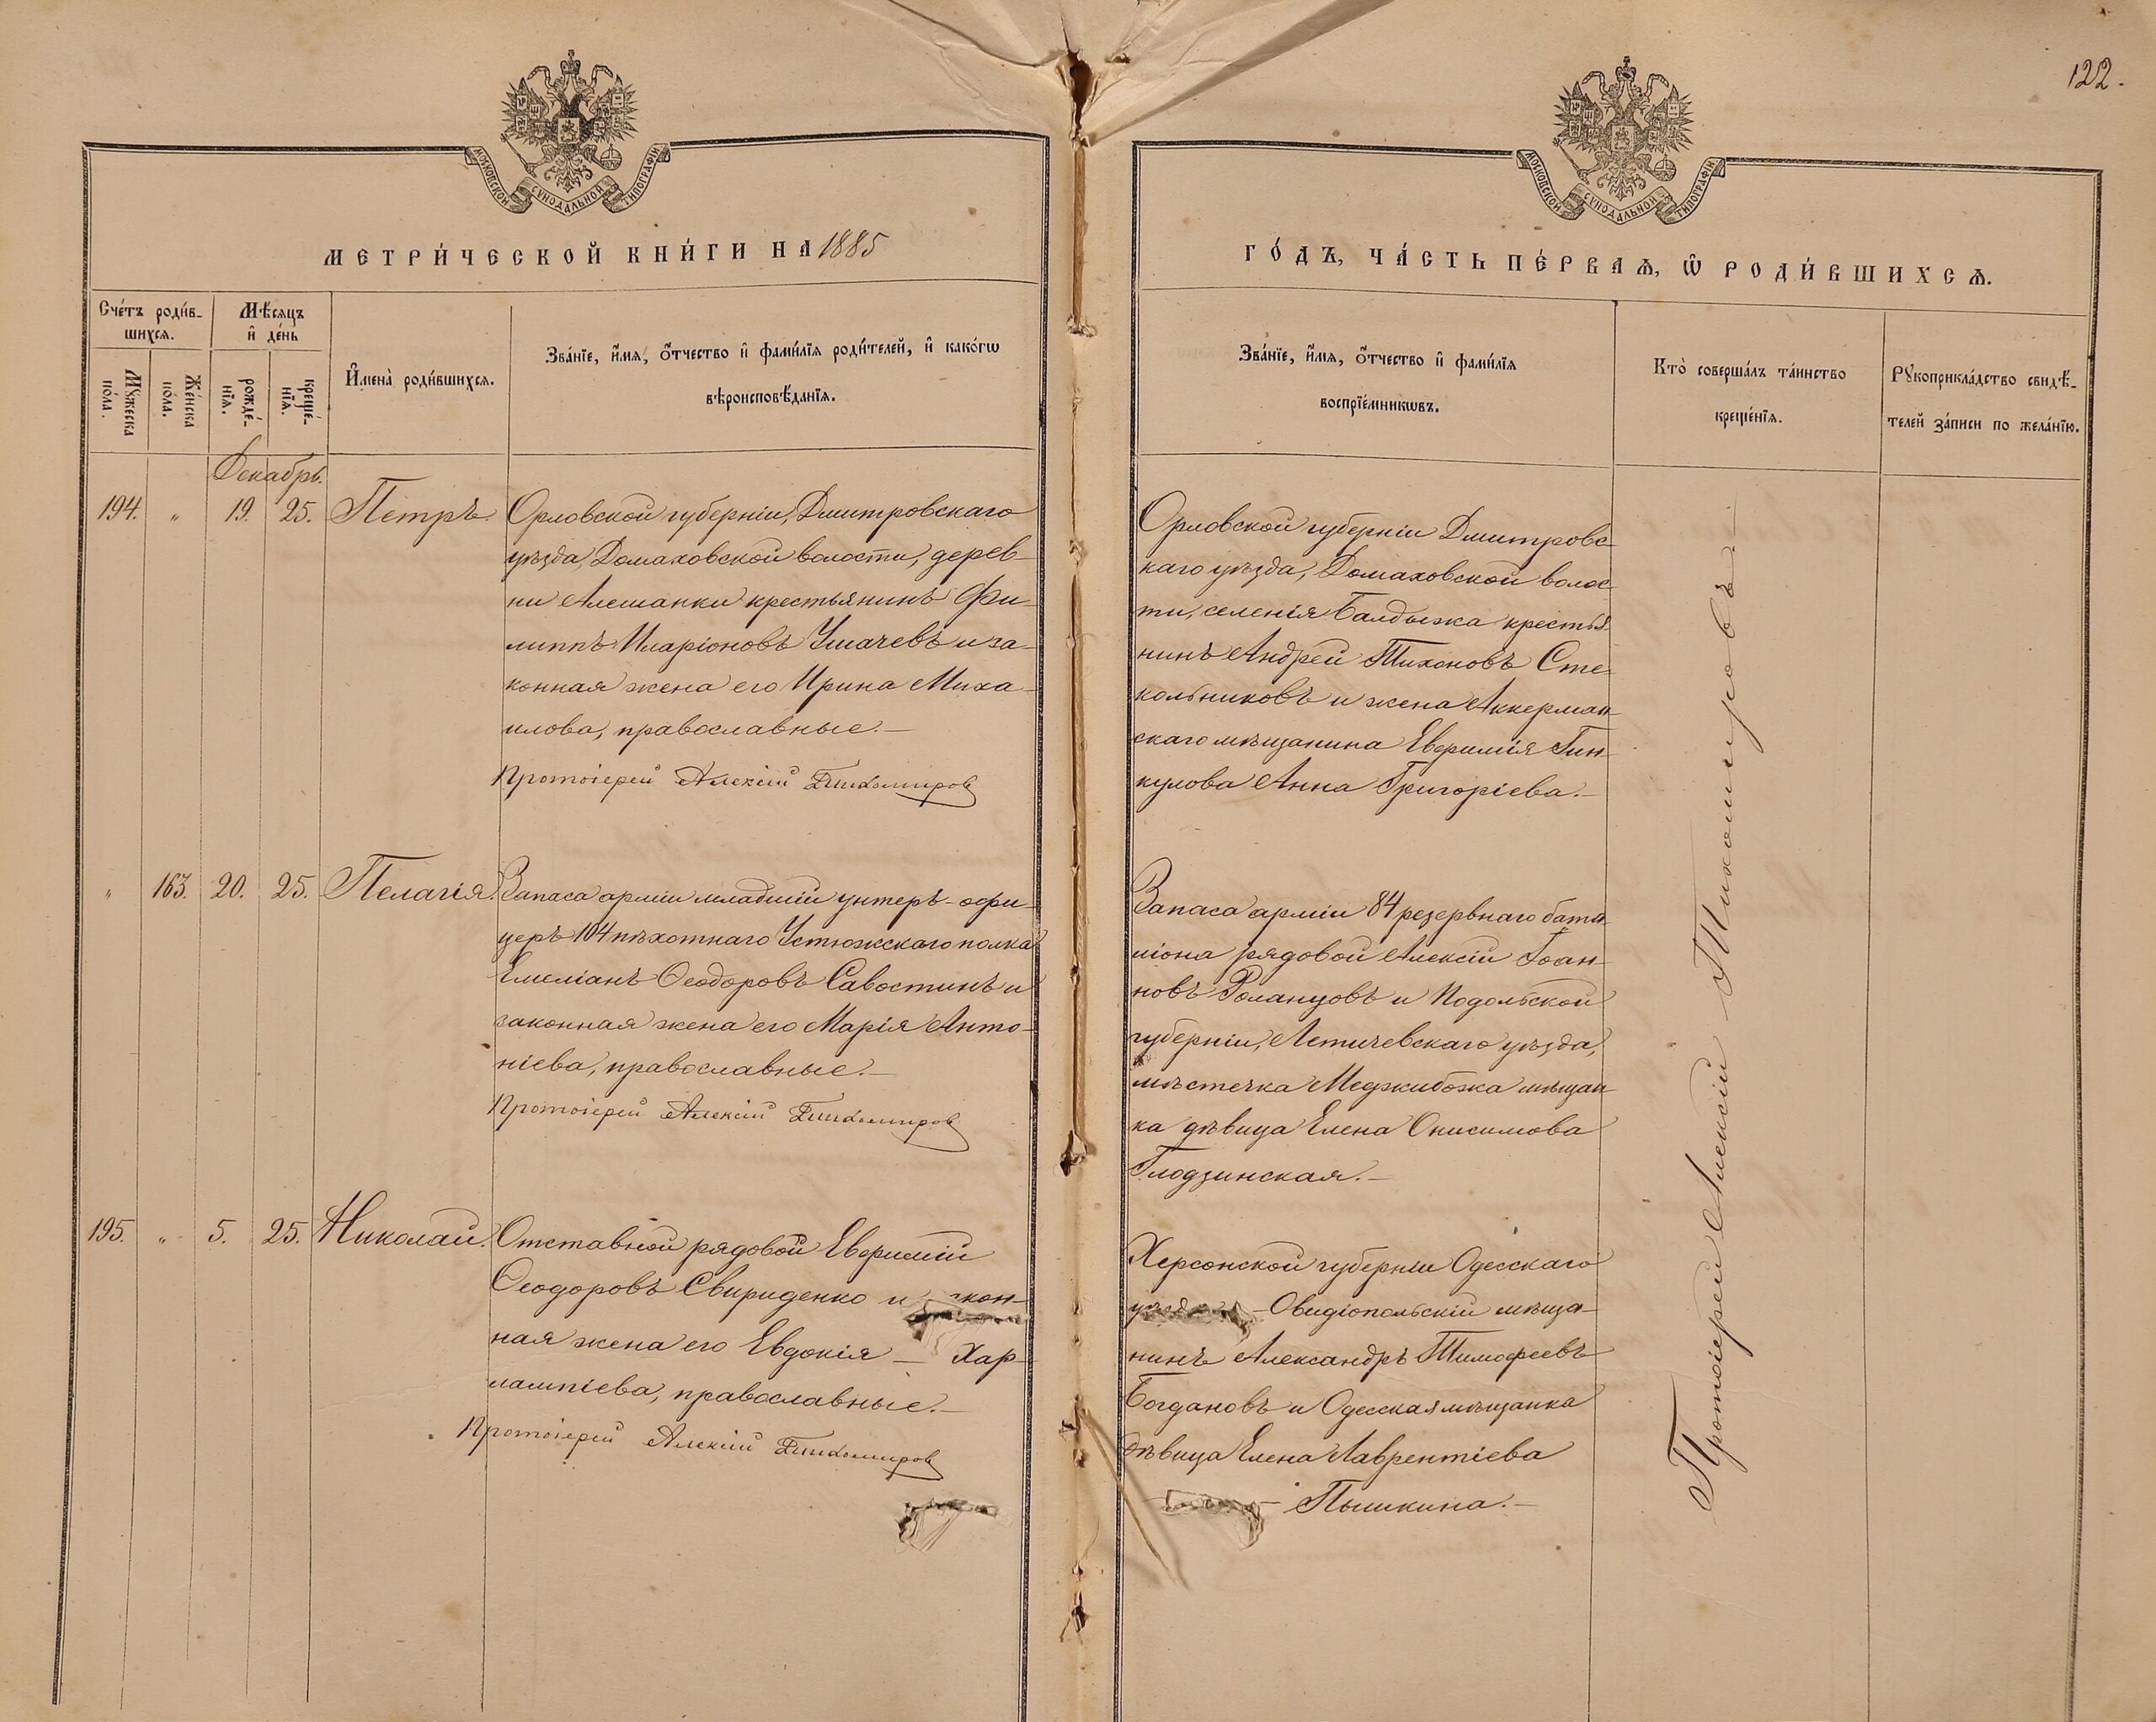 122.
МОСКОВСКОЙ СУНОДАЛЬНОЙ ТИПОГРАФІИ
МОСКОВСКОЙ СУНОДАЛЬНОЙ ТИПОГРАФІИ
МЕТРИ́ЧЕСКОЙ КНИ́ГИ НА 1885
ГО́ДЪ, ЧА́СТЬ ПЕ́РВАѦ, Ѽ РОДИ́ВШИХСѦ.
Сче́тъ роди́в-
шихсѧ.
Мꙋжеска
по́ла.
Же́нска
по́ла.
Мѣ́сѧцъ
и҆ де́нь
рожде́-
нїѧ.
креще́-
нїѧ.
И҆мена̀ роди́вшихсѧ.
Зва́нїе, и҆́мѧ, ѻ҆́тчество и҆ фами́лїѧ роди́телей, и҆ како́гѡ
вѣроисповѣ́данїѧ.
Зва́нїе, и҆́мѧ, ѻ҆́тчество и҆ фами́лїѧ
воспрїе́мникѡвъ.
Кто̀ соверша́лъ та́инство
креще́нїѧ.
Рꙋкоприкла́дство свидѣ́-
телей за́писи по жела́нїю.
Декабрь.
194. „ 19. 25. Петръ.
Орловской губерніи, Дмитровскаго
уѣзда, Домаховской волости, дерев-
ни Алешанки крестьянинъ Фи-
липпъ Иларіоновъ Умачевъ и за-
конная жена его Ирина Миха-
илова, православные.—
Протоіерей Алексій Тихомиров
Орловской губерніи Дмитровс-
каго уѣзда, Домаховской волос-
ти, селенія Балдыжа крестья-
нинъ Андрей Тихоновъ Сте-
кольниковъ и жена Аккерман-
скаго мѣщанина Евфимія Гин-
кулова Анна Григоріева.—
„ 163. 20. 25. Пелагія.
Запаса арміи младшій унтеръ-офи-
церъ 104 пѣхотнаго Устюжскаго полка
Емеліанъ Ѳеодоровъ Савостинъ и
законная жена его Марія Анто-
ніева, православные.—
Протоіерей Алексій Тихомиров
Запаса арміи 84 резервнаго бата-
ліона рядовой Алексій Іоан-
новъ Романцовъ и Подольской
губерніи, Летичевскаго уѣзда,
мѣстечка Меджибожа мѣщан-
ка дѣвица Елена Онисимова
Глодзинская.—
195. „ 5. 25. Николай.
Отставной рядовой Евфимій
Ѳеодоровъ Свириденко и
ная жена его Евдокія — Хар-
лампіева, православные.—
Протоіерей Алексій Тихомиров
Херсонской губерніи Одесскаго
Овидіопольскій мѣща-
нинъ Александръ Тимофеевъ
Богдановъ и Одесская мѣщанка
дѣвица Елена Лаврентіева
— Пышкина.—
Протоіерей Алексій Тихомировъ